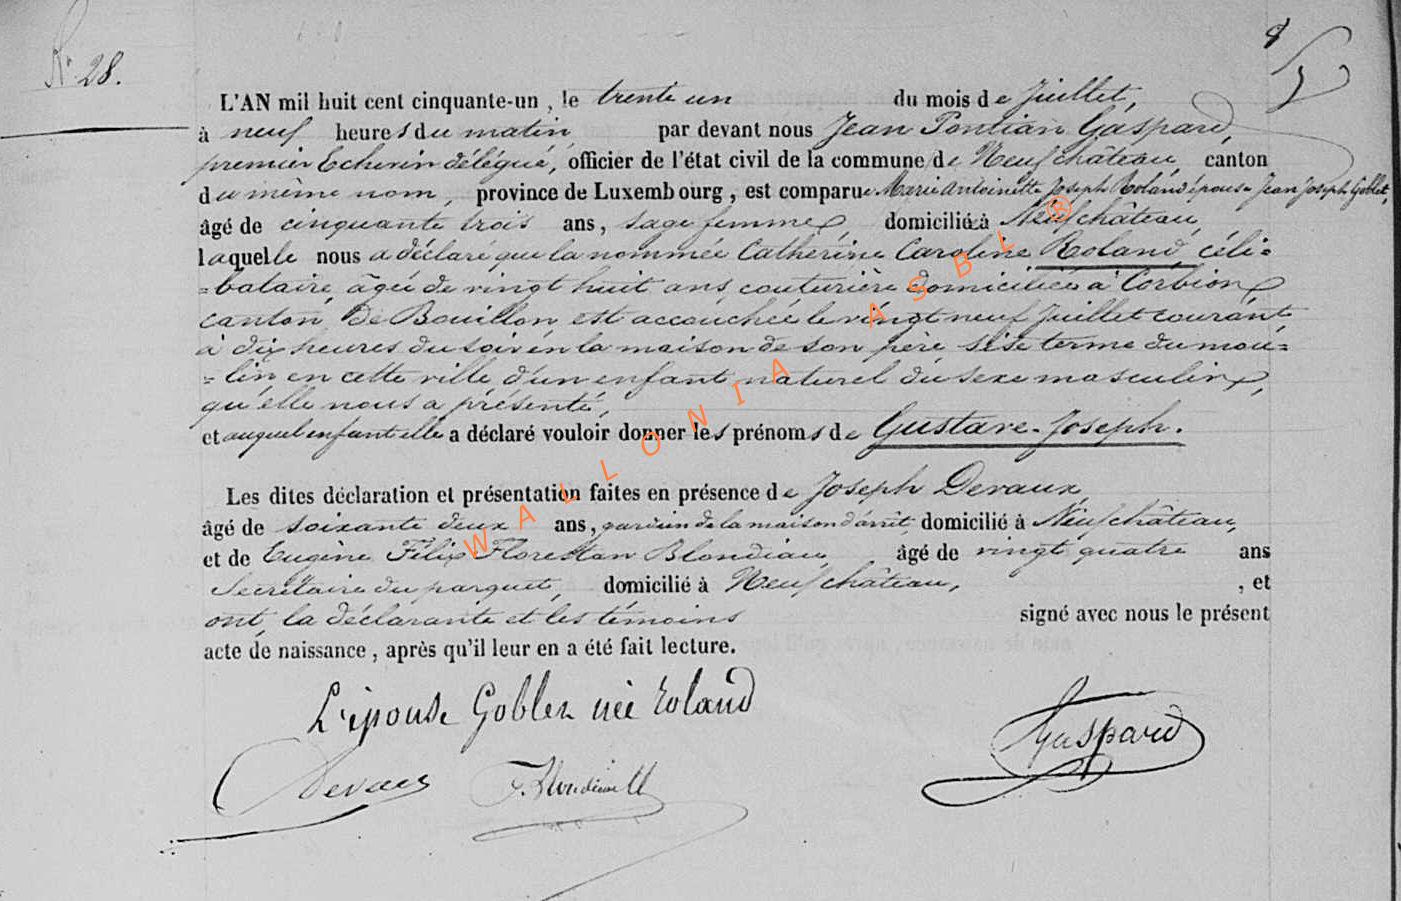 N° 28.
8
L'AN mil huit cent cinquante-un, le trente un du mois de Juillet,
à neuf heures du matin par devant nous Jean Pontian Gaspard,
premier Echevin délégué, officier de l'état civil de la commune de Neufchâteau, canton
du même nom, province de Luxembourg, est comparue Marie Antoinette Joseph Roland épouse Jean Joseph Goblet,
âgé de cinquante trois ans, sage femme, domiciliée à Neufchâteau,
laquelle nous a déclaré que la nommée Catherine Caroline Roland, céli=
=bataire, âgée de vingt huit ans, couturière domiciliée à Corbion
canton De Bouillon, est accouchée le vingt neuf Juillet courant
à dix heures du soir en la maison de son père sise terme du mou=
=lin en cette ville d'un enfant naturel du sexe masculin,
qu'elle nous a présenté,
et auquel enfant elle a déclaré vouloir donner les prénoms de Gustave-Joseph.
Les dites déclaration et présentation faites en présence de Joseph Devaux,
âgé de soixante deux ans, gardien de la maison d'arrêt, domicilié à Neufchâteau,
et de Eugène Félix Florestan Blondiau, âgé de vingt quatre ans
Secrétaire du parquet, domicilié à Neufchâteau, , et
ont, la déclarante et les témoins signé avec nous le présent
acte de naissance, après qu'il leur en a été fait lecture.
L'épouse Goblet née Roland
Gaspard
Devaux
WALLONIA ASBL ®